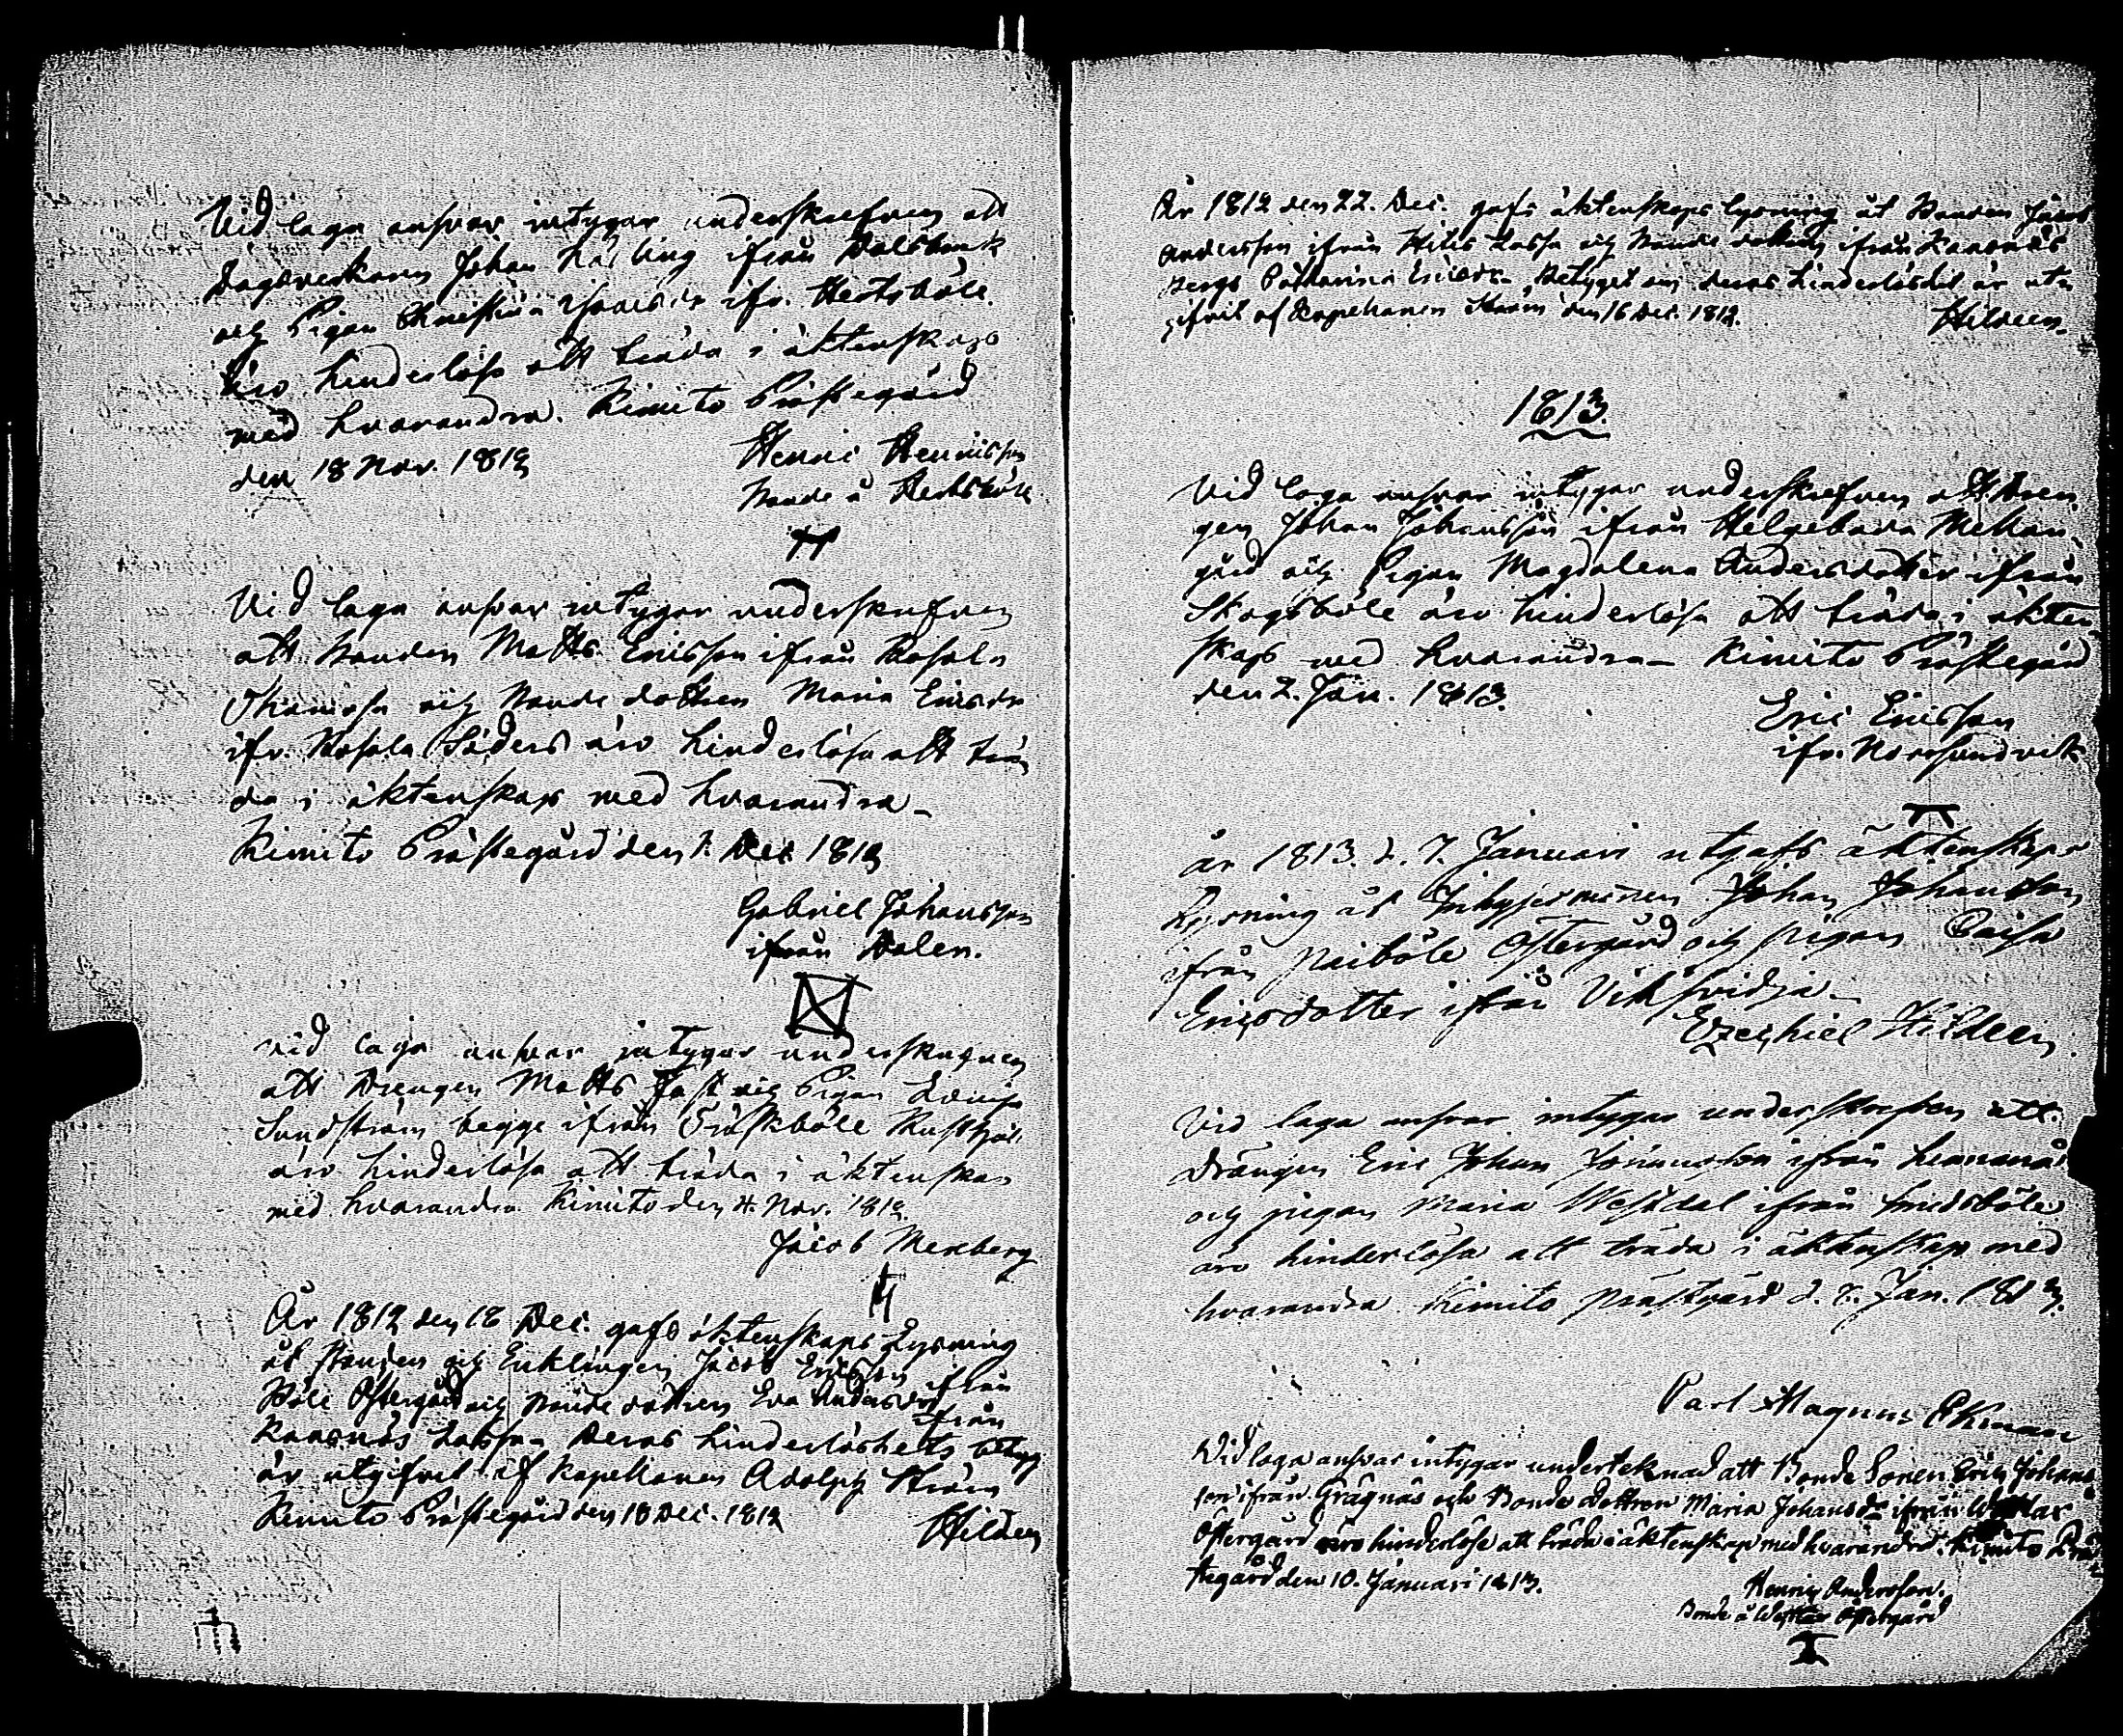 Vid laga ansvar intygar underskrefven att
Dagsverkaren Johan Hälling ifrån Dalsbruk
och Pigan Christina Isacsdr ifr. Hertsböle
äro hinderlösa att träda i äktenskap
med hvarandra. Kimito Prästegård
den 18 Nov. 1812
Henric Henricsson
Bonde å Hertsböle
Vid laga ansvar intygar underskrefven
att Bonden Matts Ericsson ifrån Rosala
och Bonde dottren Maria Ericsdr
ifr. Rosala Söders äro hinderlösa att trä
da i äktenskap med hvarandra
Kimito Prästegård den 1. Dec 1812
Gabriel Johansson
ifrån Dalen.
Vid laga ansvar intygar underskrefven
att Drengen Matts Fast och Pigan Lovisa
Sundström begge ifrån Träskböle Rusthåll
äro hinderlösa att träda i äktenskap
med hvarandra Kimito den 4. Nov. 1812
Jacob Mexberg
År 1812 den 18 Dec. gafs äktenskaps Lysning
åt Bonden och Enklingen Jacob Ericsson ifrån
Böle Östergård och Bonde dottren Eva Andersdr ifrån
Kasnäs Lassas Deras hinderlöshets betyg
är utgifvet af Kapellanen Adolph Ström
Kimito Prästegård den 18 Dec. 1812
Hildeen
År 1812 den 22. Dec. gafs äktenskaps lysning åt Bonden Jacob
Andersson ifrån Hitis Lassas och Bonde dottren ifrån Kasnäs
Bergs Catharina Ericsdr. Betyget om deras hinderlöshet är ut
gifvit af Kapellanen Ström den 16 Dec. 1812.
Hildeen
1813
Vid laga ansvar intygar underskrefven att Dren
gen Johan Johansson ifrån Helgeboda Mellan
gård och Pigan Magdalena Andersdotter ifrån
Skogsböle äro hinderlösa att träda i äkten
skap med hvarandra Kimito Prästegård
den 2. Jan. 1813.
Eric Ericsson
ifr. Norrsundvik
år 1813. d. 7. Januari utgafs äktenskaps
Lysning åt Inhysesmannen Johan Johansson
ifrån Reiböle Östergård och pigan Caisa
Ericsdotter ifrån Viksvidja
Ezechiel Hildeen
Vid laga ansvar intygar underskrefven att
drängen Eric Johan Johansson ifrån
och pigan Maria Westdal ifrån Smedsböle
äro hinderlösa att träda i äktenskap med
hvarandra. Kimito prästgård d. 8. Jan. 1813.
Carl Magnus Ekman
Vid laga ansvar intygar underteknad att Bonde Sonen Erich Johans
son ifrån Grägnäs och Bonde Dottren Maria Johansdr ifrån Westlax
Östergård äro hinderlöse att träda i äktenskap med hvarandra. Kimito Prä
stegård den 10. Januari 1813.
Henrich Andersson.
Bonde å Westlax Östergård